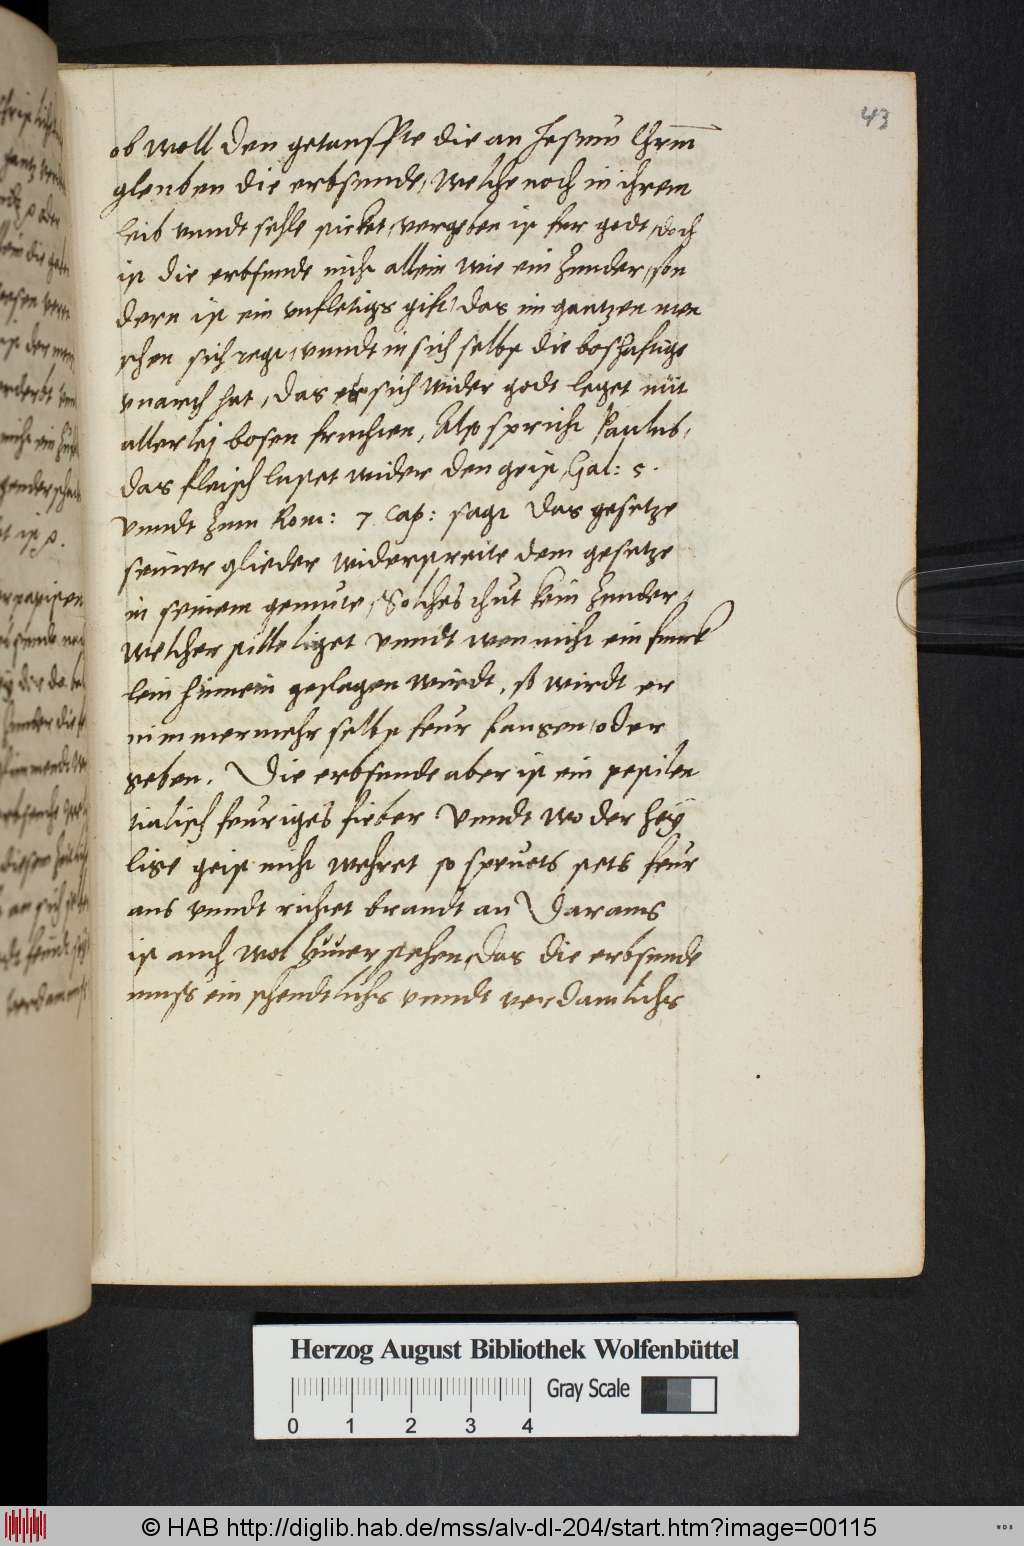 43
ob woll den getaufften die an Jesum Chrm̅
gleuben die erbsunde, welche noch in ihrem
leib vnndt sehle sticket, vergeben ist fur godt, doch
ist die erbsunde nicht allein wie ein Zunder, son
dern ist ein vnfletigs gift, das im gantzen men
schen sich regt, vnndt in sich selbst die boshaftige
vnarth hat, das er sich wider godt leget mit
allerlej bosen fruchten, Also spricht Paulus,
das fleisch lustet wider den geist, Gal: 5.
Vnndt Zum Rom: 7 Cap: sagt das gesetze
seiner glieder widerstreite dem gesetze
in seinem gemute, Solches thut kein Zunder,
welcher stille liget vnndt wen nicht ein funck
lein hinnein geslagen wirdt, so wirdt er
nimmermehr selbst feur fangen, oder
geben. Die erbsunde aber ist ein pestilen
tialisch feuriges fieber Vnndt wo der hey
lige geist nicht wehret so spruets stets feur
aus vnndt richtet brandt an Daraus
ist auch wol Zuuerstehen, das die erbsunde
muss ein schendtlichs vnndt verdamlichs
Herzog August Bibliothek Wolfenbüttel
Gray Scale
0 1 2 3 4
© HAB http://diglib.hab.de/mss/alv-dl-204/start.htm?image=00115